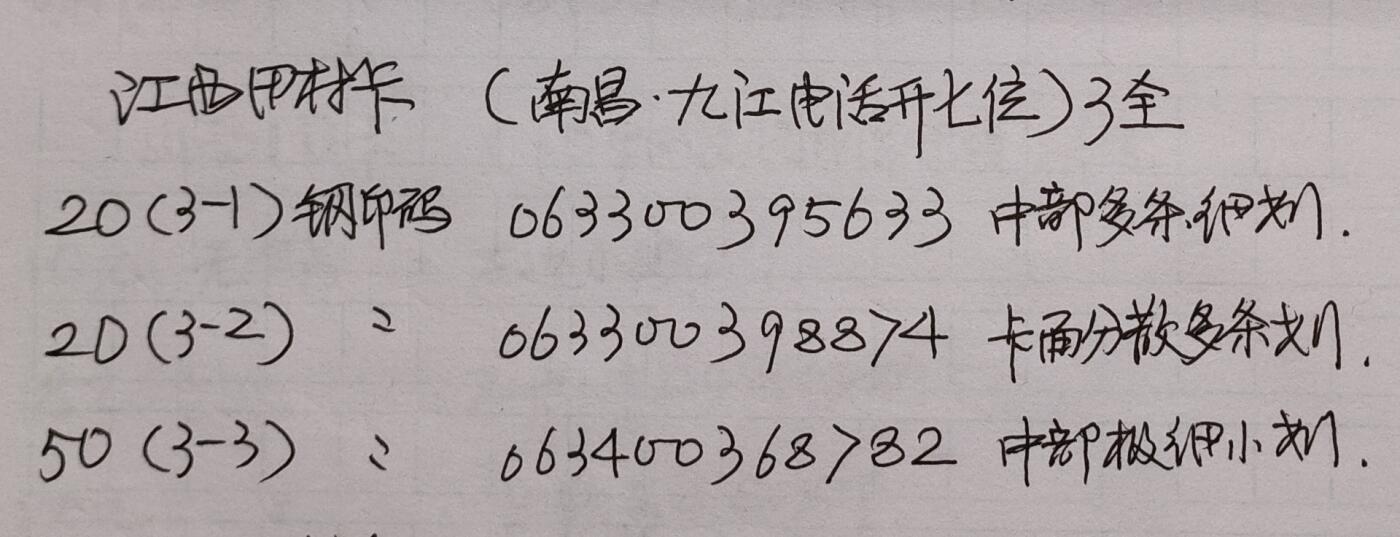 江西田村卡 (南昌·九江电话升七位)3全
20(3-1)钢印码 063300395633 中部多条细划.
20(3-2) 〃 063300398874 卡面分散多条划.
50(3-3) 〃 063400368782 中部极细小划.